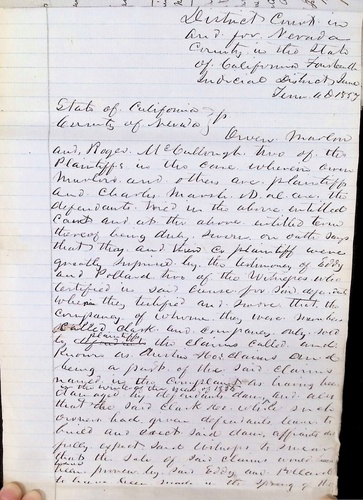 District Court in
and for Nevada
County in the State
of California Fourteenth
Judicial District June
Term AD 1857
State of California
County of Nevada
Owen Marlon
and Roger McCullough two of the
Plaintiffs in the case wherein Owen
Marlon and others are plaintiffs
and Charles Marsh et al are the
defendants tried in the above entitled
Court and at the above entitled term
thereof being duly sworn on oath says
that they and their Co plaintiffs were
greatly surprised by the testimony of Eddy
and Pollard two of the Witnesses who
testified in said cause for said defendants
wherein they testified and swore that the
company of whom they were members
called Clark and company only sold
to plaintiffs the claims called and
known as claims and
being a part of the said claims
named in the Complaint as having been
by defendants dam, and also
that the said Clark & Co while such
owners had given defendants leave to
build and erect said dam, affiants do
fully expect said witness to swear
that the sale of said claims
been proven by said Eddy and Pollard
to have been made in the Spring of the